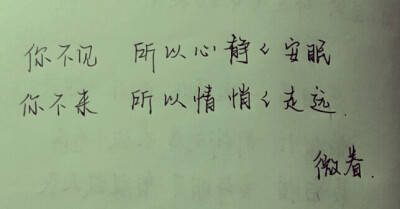 你不见 所以心静々安眠
你不来 所以情悄々走远.
微着.